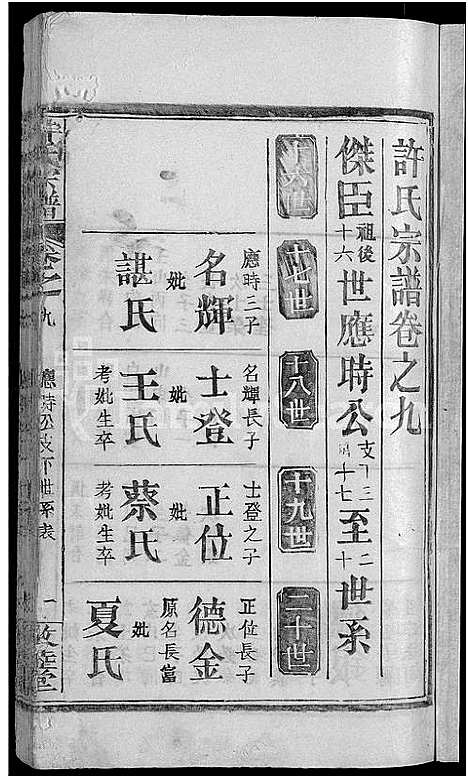 許氏宗譜卷之九
傑臣祖後十六世應時公支下三房十七至二十世系
十六世
十七世
十八世
十九世
二十世
應時三子
名輝
妣
諶氏
名輝長子
士登
妣
王氏
考妣生卒
士登之子
正位
妣
蔡氏
考妣生卒
正位長子
德金
原名長富
妣
夏氏
許氏宗譜
卷之九
應時公支下世系表
一
敦睦堂